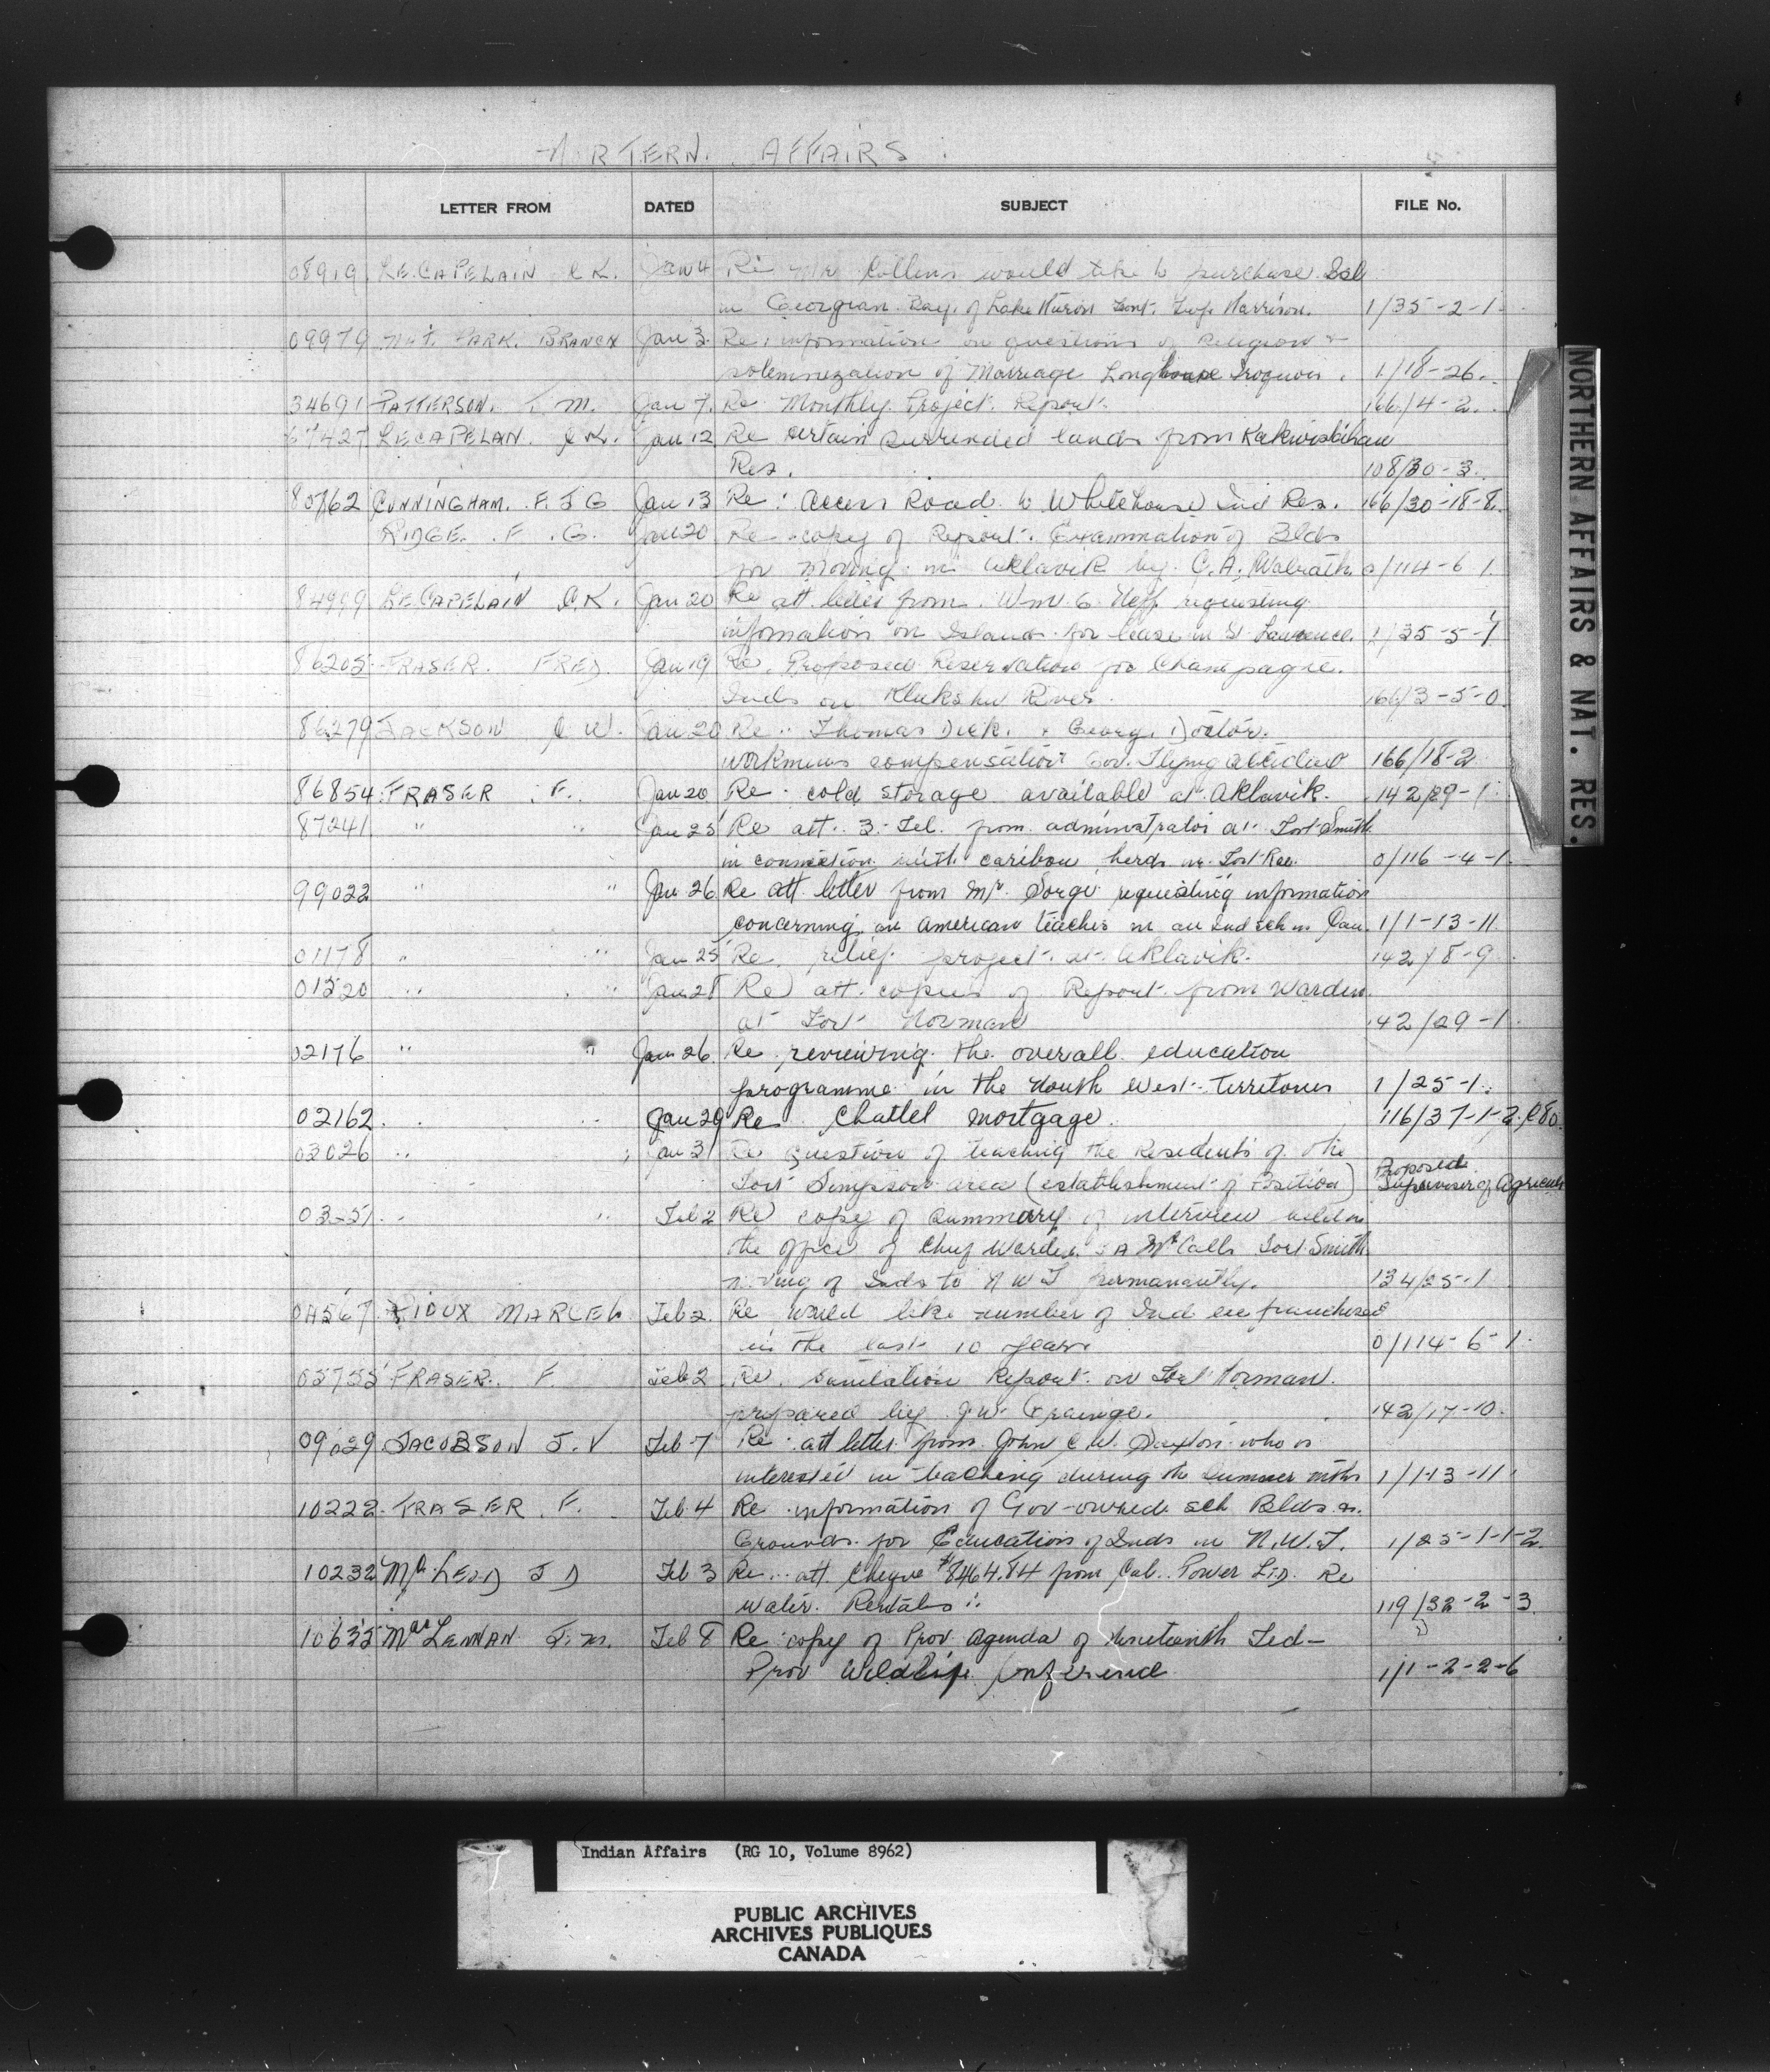 N RTERN. AFFAIRS.
LETTER FROM DATED SUBJECT FILE No.
08919 LE.CAPELAIN C K. Jan 4 Re Mr Collins would like to purchase Isl
in Georgian Bay of Lake Huron Twp. Harrison. 1/35-2-1
09979 NAT. PARK. BRANCH Jan 3 Re: information on questions of Religion &
solemnization of Marriage Longhouse Iroquois. 1/18-26.
34691 PATTERSON. T. M. Jan 7. Re Monthly Project Report. 166/4-2.
67427 LECAPELAN. C K. Jan 12 Re certain surrended lands from
Res. 108/30-3.
80762 CUNNINGHAM. F. J G Jan 13 Re: access Road to Whitehorse Ind Res. 166/30-18-8.
RIDGE. F. G. Jan 20 Re copy of Report. Examination of Blds
for moving in Aklavik by C. A. Walrath. 0/114-6-1
84999 LE.CAPELAIN C K. Jan 20 Re att letter from Wm G. Neff requesting
information on Islands for lease in St Lawrence. 1/35-5-1
86205 FRASER. FRED. Jan 19 Re. Proposed Reservation for Champagne.
Inds on Klukshu River. 166/3-5-0
86279 JACKSON C W. Jan 20 Re: Thomas Dick. & George Doctor.
workmens compensation Gov. Flying accident 166/18-2
86854 FRASER F. Jan 20 Re cold storage available at Aklavik. 142/29-1
87241 " " Jan 25 Re att. 3 Tel. from administrator at Fort Smith
in connection with caribou herds nr. Fort Rae. 0/116-4-1
99022 " " Jan 26 Re att letter from Mr. Sorge requesting information
concerning an American teacher in an Ind sch in Can. 1/1-13-11
01178 " " Jan 25 Re. relief project at Aklavik. 142/8-9
01520 " " Jan 28 Re att. copies of Report from Warden
at Fort Norman 142/29-1
02176 " " Jan 26 Re reviewing the overall education
programme in the North West Territories 1/25-1
02162 Jan 29 Re Chattel mortgage. 116/37-1-2
03026 " Jan 31 Re question of teaching the Residents of the
Fort Simpson area (establishment of Position) Proposed
Supervisor of Agricult
Feb 2 Re copy of summary of interview held in
the office of Chief Warden McCall Fort Smith
moving of Inds to N W T permanantly. 134/25-1
04567 RIOUX MARCEL Feb 2. Re would like number of Ind enfranchised
in the last 10 years 0/114-6-1
FRASER. F. Feb 2 Re. Sanitation Report on Fort Norman.
prepared by J W. Grainge. 142/17-10.
09029 JACOBSON J. V Feb 7 Re att letter from John C. W. Saxton who is
interested in teaching during the Summer mths 1/1-13-11
10222 FRASER. F. Feb 4 Re information of Gov-owned sch Blds &
Grounds for Education of Inds in N. W. T. 1/25-1-1-2.
10232 McLEOD J D Feb 3 Re att Cheque $8464.84 from Cal. Power Ltd. Re
Water Rentals 119/32-2-3
10635 MacLENNAN J. M. Feb 8 Re copy of Prov Agenda of nineteenth Fed-
Prov Wildlife Conference 1/1-2-2-6
NORTHERN AFFAIRS & NAT. RES.
Indian Affairs (RG 10, Volume 8962)
PUBLIC ARCHIVES
ARCHIVES PUBLIQUES
CANADA